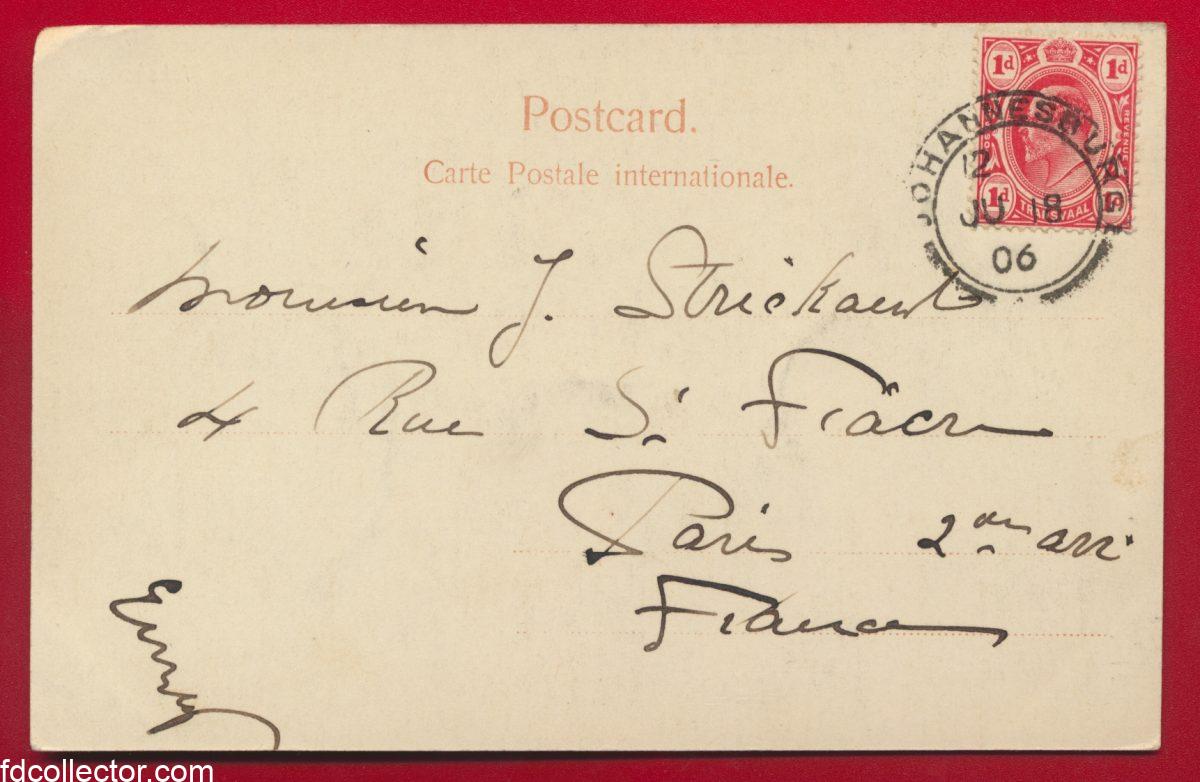 Postcard.
Carte Postale internationale.
1d 1d
REVENUE
1d 1d
TRANSVAAL
JOHANNESBURG
12
JU 18
06
Monsieur J. Strickaert
4 Rue St. Fiacre
Paris 2me arr.
France
fdcollector.com